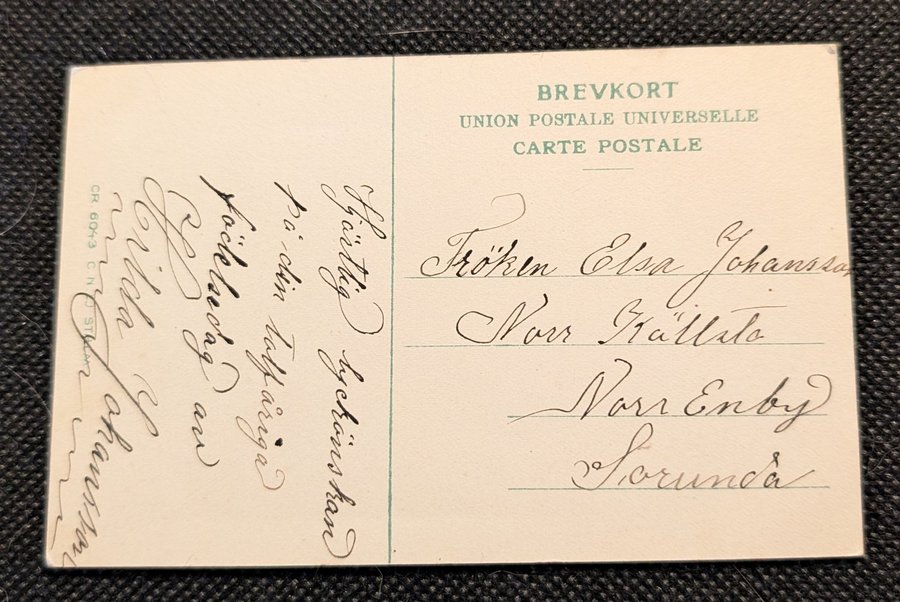 BREVKORT
UNION POSTALE UNIVERSELLE
CARTE POSTALE
Fröken Elsa Johansson
Norr Källsta
Norr Enby
Sorunda
Hjärtlig lyckönskan
på din tolfåriga
födelsedag av
Hilda Johansson
CR 6043 C N